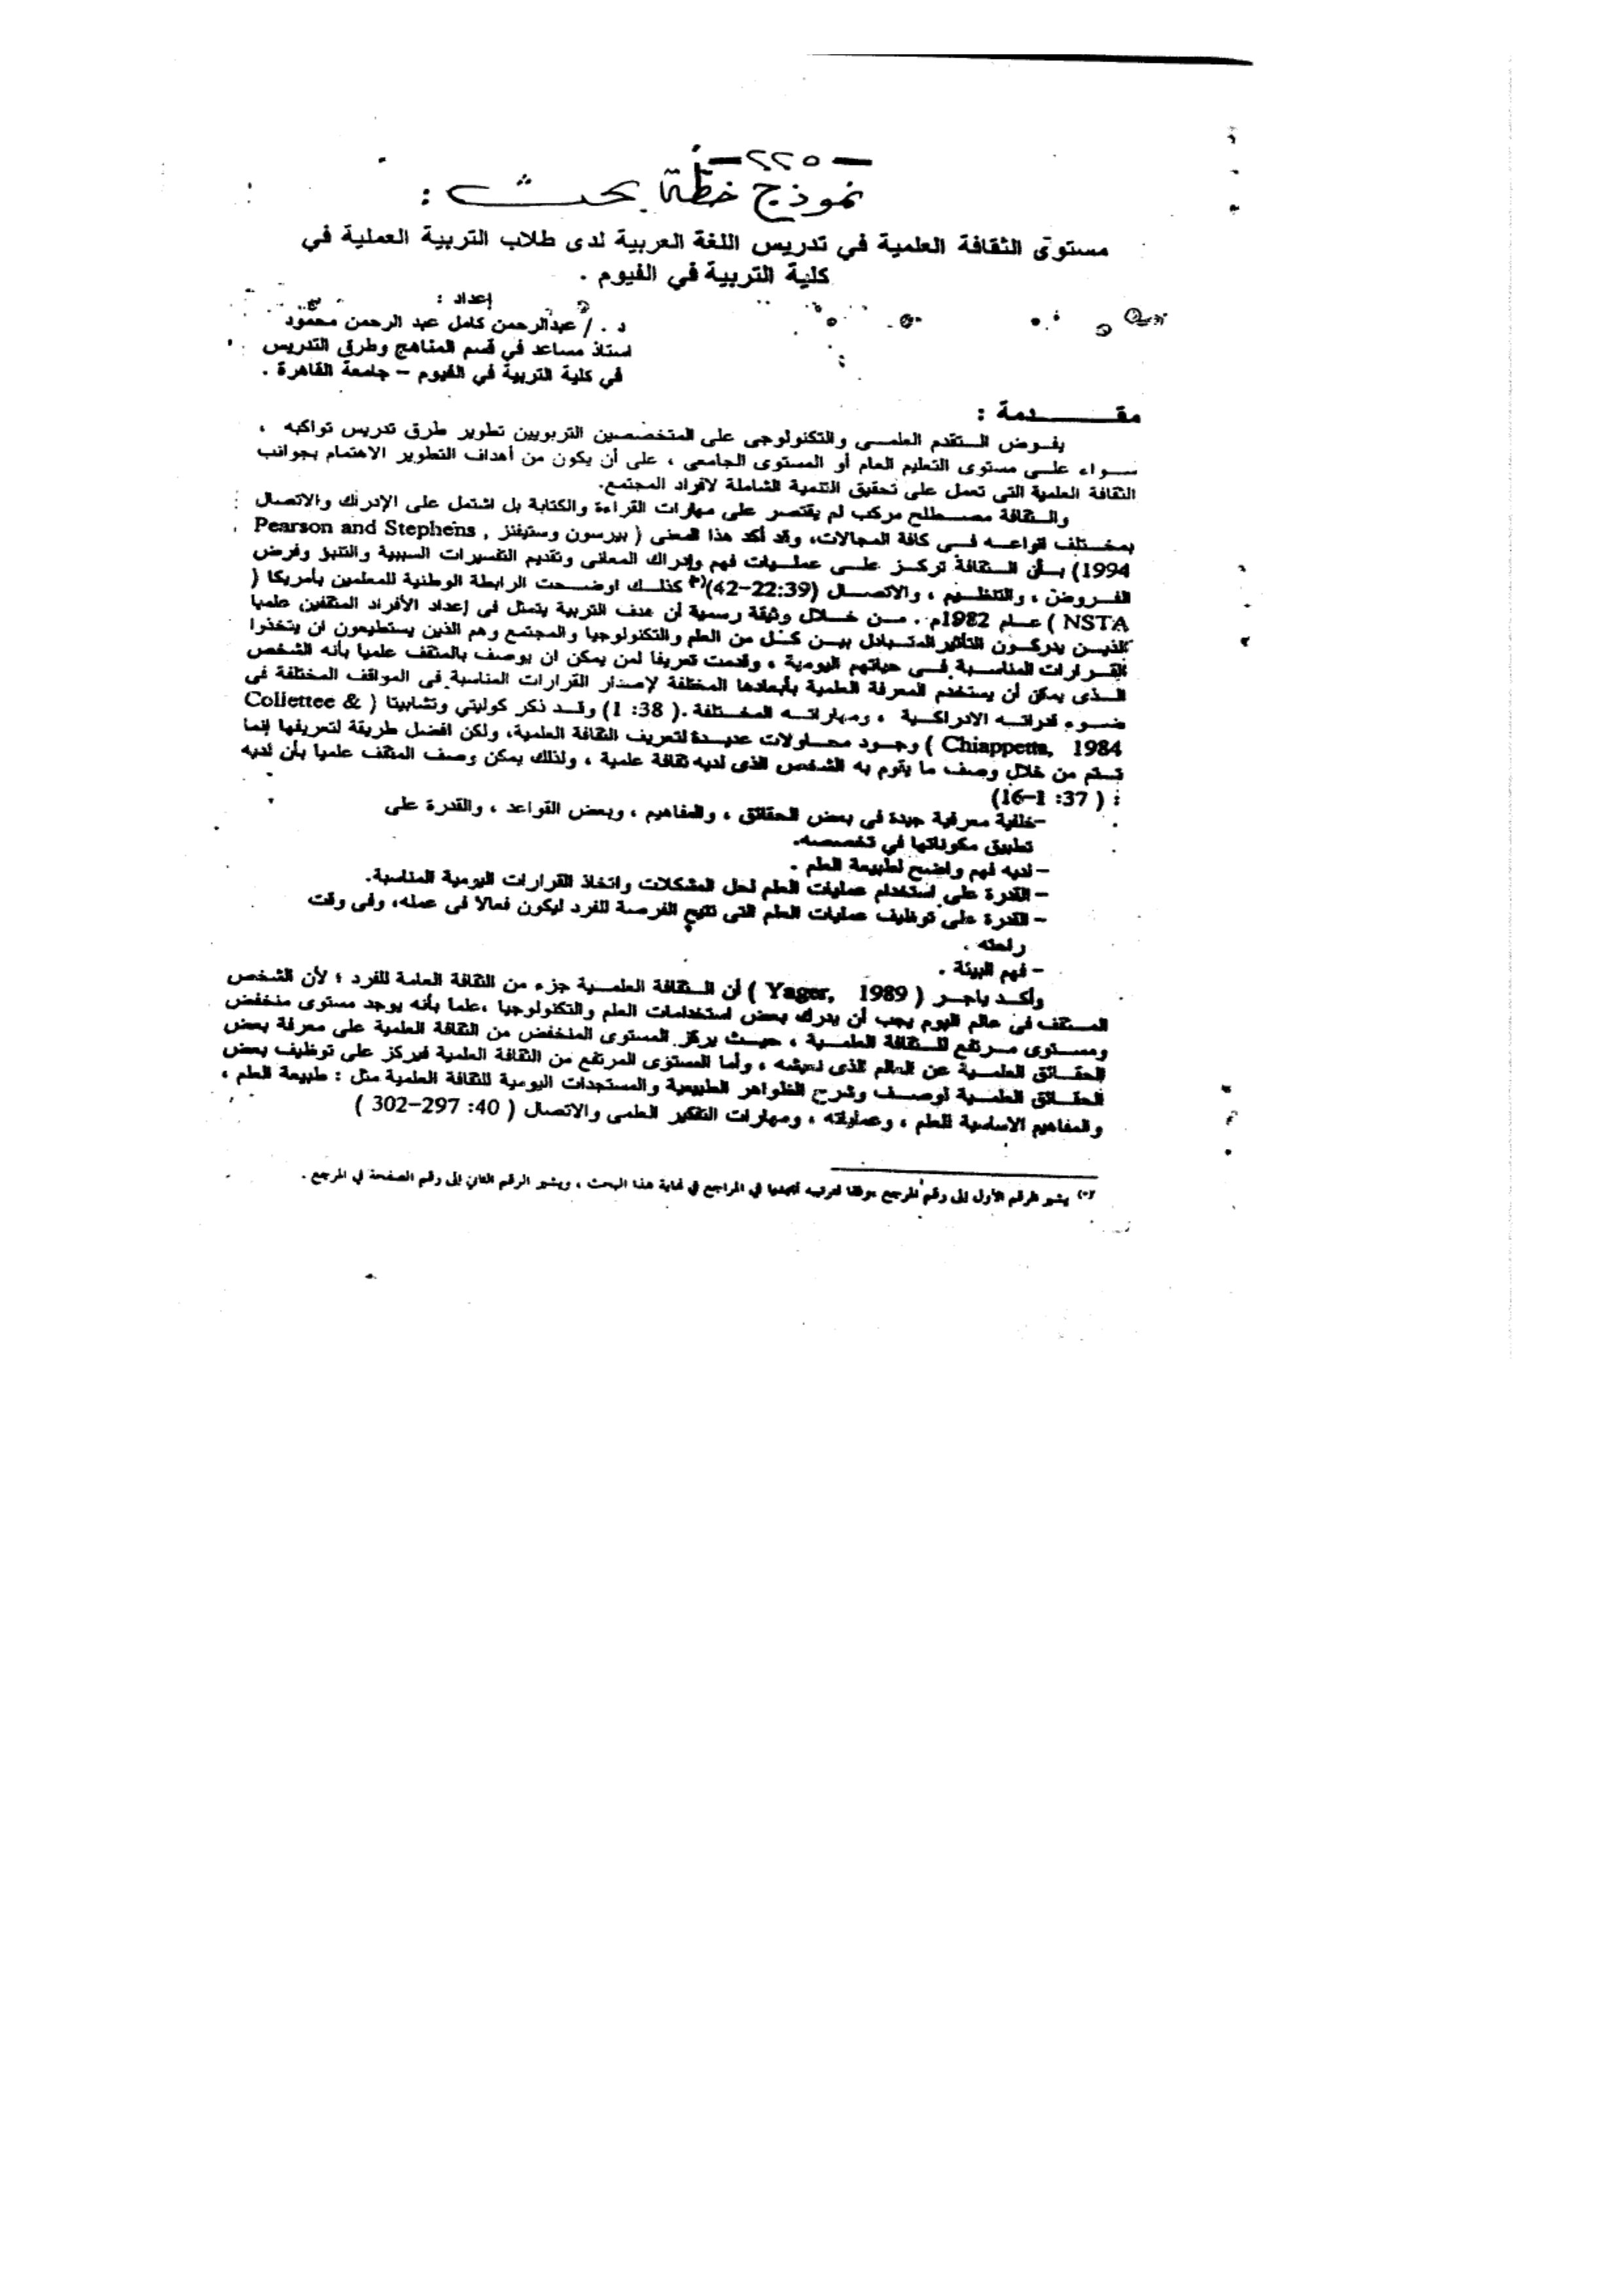 – ٢٢٥ –
نموذج خطة بحث :
مستوى الثقافة العلمية في تدريس اللغة العربية لدى طلاب التربية العملية في
كلية التربية في الفيوم .
إعداد :
د . / عبدالرحمن كامل عبد الرحمن محمود
استاذ مساعد في قسم المناهج وطرق التدريس
في كلية التربية في الفيوم – جامعة القاهرة .
مقـــــــدمة :
يفـرض الـتقدم العلمـى والتكنولوجى على المتخصصين التربويين تطوير طرق تدريس تواكبه ،
سـواء علـى مستوى التعليم العام أو المستوى الجامعى ، على أن يكون من أهداف التطوير الاهتمام بجوانب
الثقافة العلمية التى تعمل على تحقيق التنمية الشاملة لافراد المجتمع.
والـثقافة مصـطلح مركب لم يقتصر على مهارات القراءة والكتابة بل اشتمل على الإدراك والاتصال
بمخـتلف انواعـه فـى كافة المجالات، وقد أكد هذا المعنى ( بيرسون وستيفنز , Pearson and Stephens
1994) بـأن الـثقافة تركـز علـى عملـيات فهم وإدراك المعانى وتقديم التفسيرات السببية والتنبؤ وفرض
الفـروض ، والتنظـيم ، والاتصـال (22:39–42)(*) كذلـك اوضـحت الرابطة الوطنية للمعلمين بأمريكا (
NSTA ) عـام 1982م . مـن خـلال وثيقة رسمية أن هدف التربية يتمثل فى إعداد الأفراد المثقفين علميا
الذيـن يدركـون التأثير المتـبادل بيـن كـل من العلم والتكنولوجيا والمجتمع وهم الذين يستطيعون ان يتخذوا
القـرارات المناسـبة فـى حياتهم اليومية ، وقدمت تعريفا لمن يمكن ان يوصف بالمثقف علميا بأنه الشخص
الـذى يمكن أن يستخدم المعرفة العلمية بأبعادها المختلفة لإصدار القرارات المناسبة فى المواقف المختلفة فى
ضـوء قدراتـه الادراكـية ، ومهاراتـه المخـتلفة .( 38: 1) وقـد ذكر كوليتي وتشابيتا ( Collettee &
Chiappetta, 1984 ) وجـود محـاولات عديـدة لتعريف الثقافة العلمية، ولكن افضل طريقة لتعريفها إنما
تـتم من خلال وصف ما يقوم به الشخص الذى لديه ثقافة علمية ، ولذلك يمكن وصف المثقف علميا بأن لديه
: ( 37: 1–16)
–خلفية معرفية جيدة فى بعض الحقائق ، والمفاهيم ، وبعض القواعد ، والقدرة على
تطبيق مكوناتها في تخصصه.
– لديه فهم واضح لطبيعة العلم .
– القدرة على استخدام عمليات العلم لحل المشكلات واتخاذ القرارات اليومية المناسبة.
– القدرة على توظيف عمليات العلم التى تتيح الفرصة للفرد ليكون فعالا فى عمله، وفى وقت
راحته .
– فهم البيئة .
وأكـد ياجـر ( Yager, 1989 ) أن الـثقافة العلمـية جزء من الثقافة العامة للفرد ؛ لأن الشخص
المـثقف فى عالم اليوم يجب أن يدرك بعض استخدامات العلم والتكنولوجيا ،علما بأنه يوجد مستوى منخفض
ومسـتوى مـرتفع للـثقافة العلمـية ، حيـث يركز المستوى المنخفض من الثقافة العلمية على معرفة بعض
الحقـائق العلمـية عن العالم الذى نعيشه ، وأما المستوى المرتفع من الثقافة العلمية فيركز على توظيف بعض
الحقـائق العلمـية لوصـف وشرح الظواهر الطبيعية والمستجدات اليومية للثقافة العلمية مثل : طبيعة العلم ،
والمفاهيم الاساسية للعلم ، وعملياته ، ومهارات التفكير العلمى والاتصال ( 40: 297–302 )
(*) يشير الرقم الأول إلى رقم المرجع موفقا لترتيبه أبجديا في المراجع في نهاية هذا البحث ، ويشير الرقم الثاني إلى رقم الصفحة في المرجع .